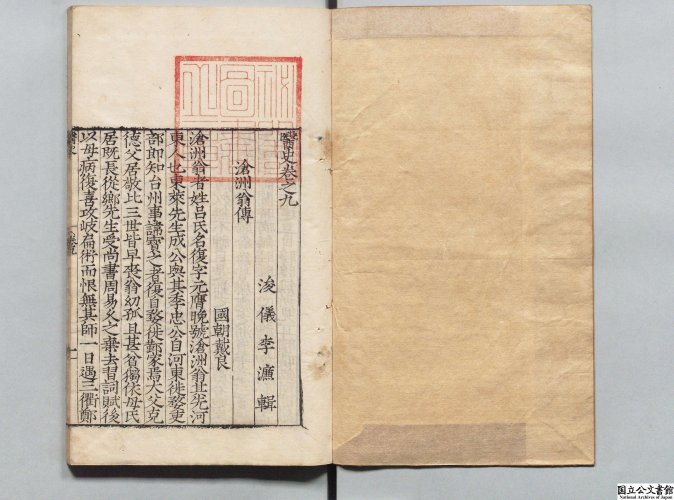 醫史卷之九
浚儀李濂輯
滄洲翁傳
國朝戴良
滄洲翁者姓呂氏名復字元膺晚號滄洲翁其先河
東人也東萊先生成公與其季忠公自河東徙婺吏
部郎知台州事諱寶之者復自婺徙鄞家焉大父克
德父居敬比三世皆早喪翁幼孤且甚貧依母氏
居既長從鄉先生受尚書周易久之棄去習詞賦後
以母病復喜攻岐扁術而恨無其師一日遇三衢鄭
国立公文書館
National Archives of Japan